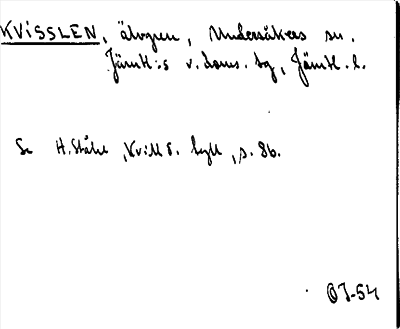 KVISSLEN, älvgren, Undersåkers sn.
Jämtl:s v. doms. tg, Jämtl. l.
Se H. Ståhl, Kvill o. tyll, s. 86.
OJ-54